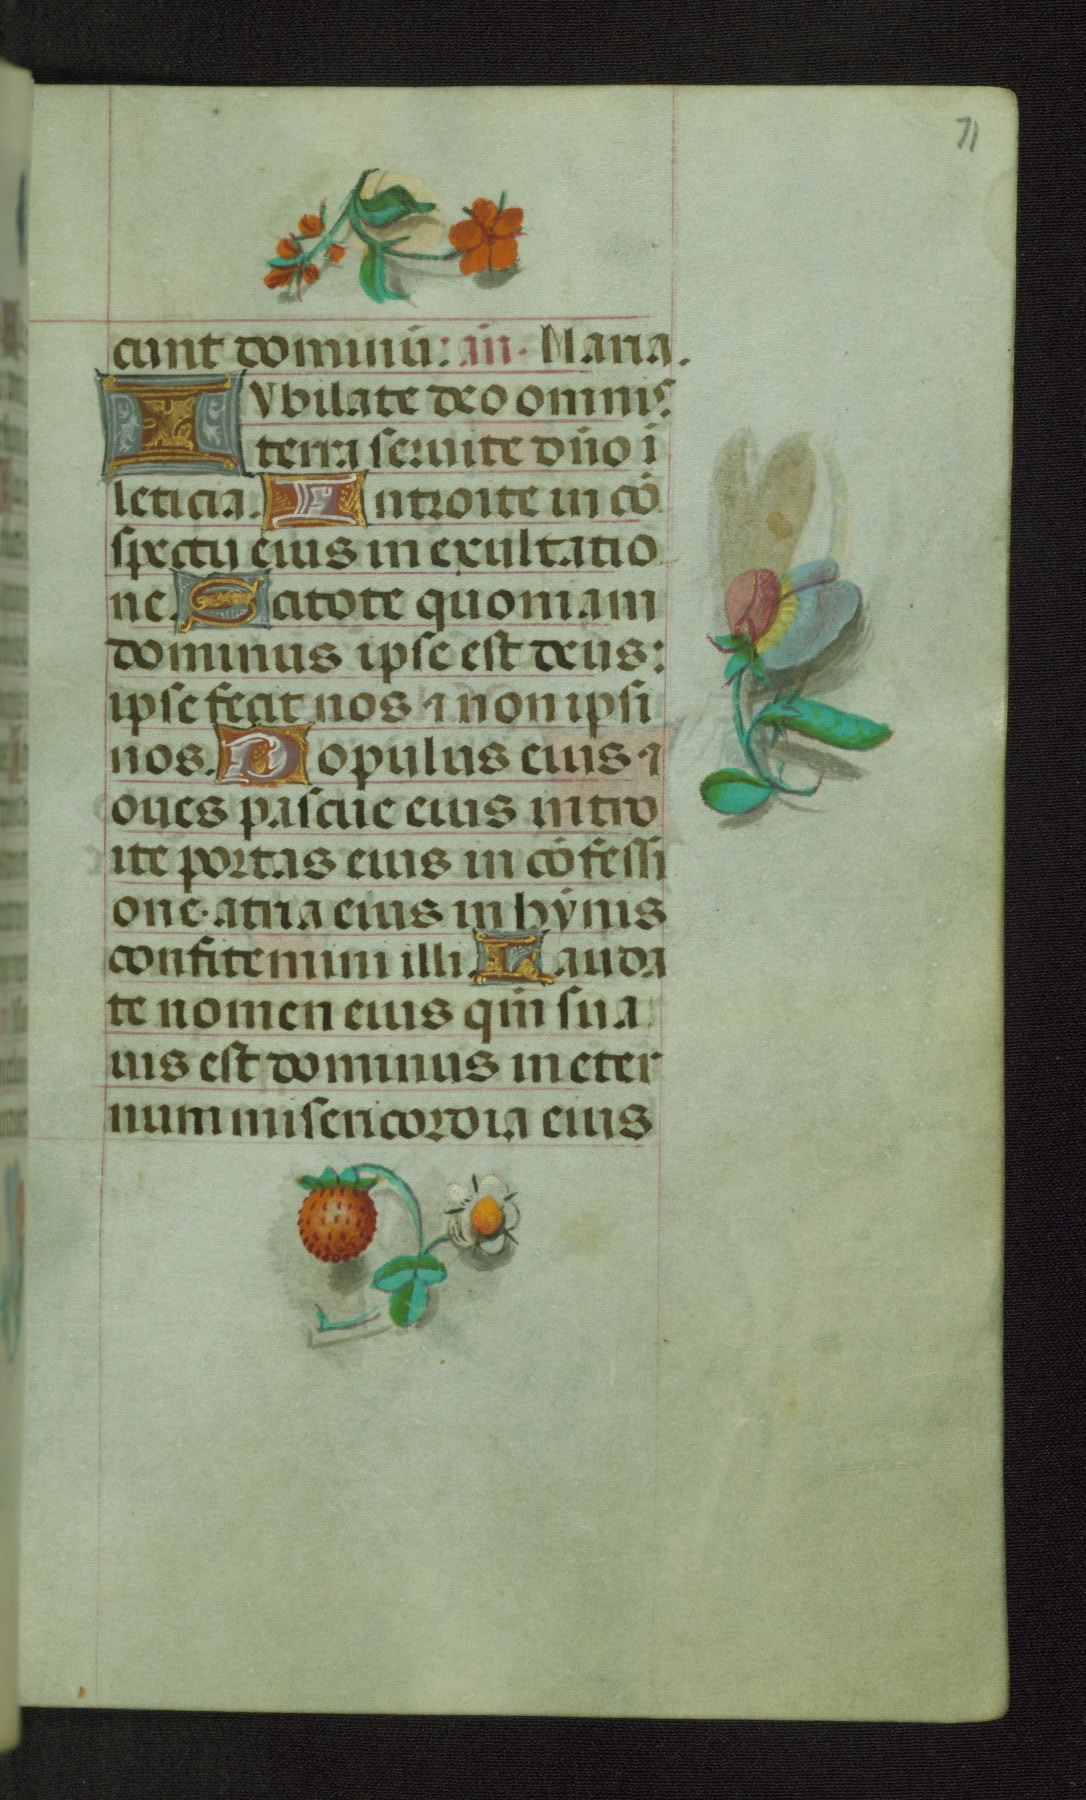 71
cunt dominū: añ. Maria.
IVbilate deo omnis
terra seruite dño ī
leticia. Introite in cō
spectu eius in exultatio
ne. Scitote quoniam
dominus ipse est deus:
ipse fecit nos ⁊ non ipsi
nos. Populus eius ⁊
oues pascue eius intro
ite portas eius in cōfessi
one. atria eius in hÿnis
confitemini illi. Lauda
te nomen eius qm̄ sua
uis est dominus in eter
num misericordia eius